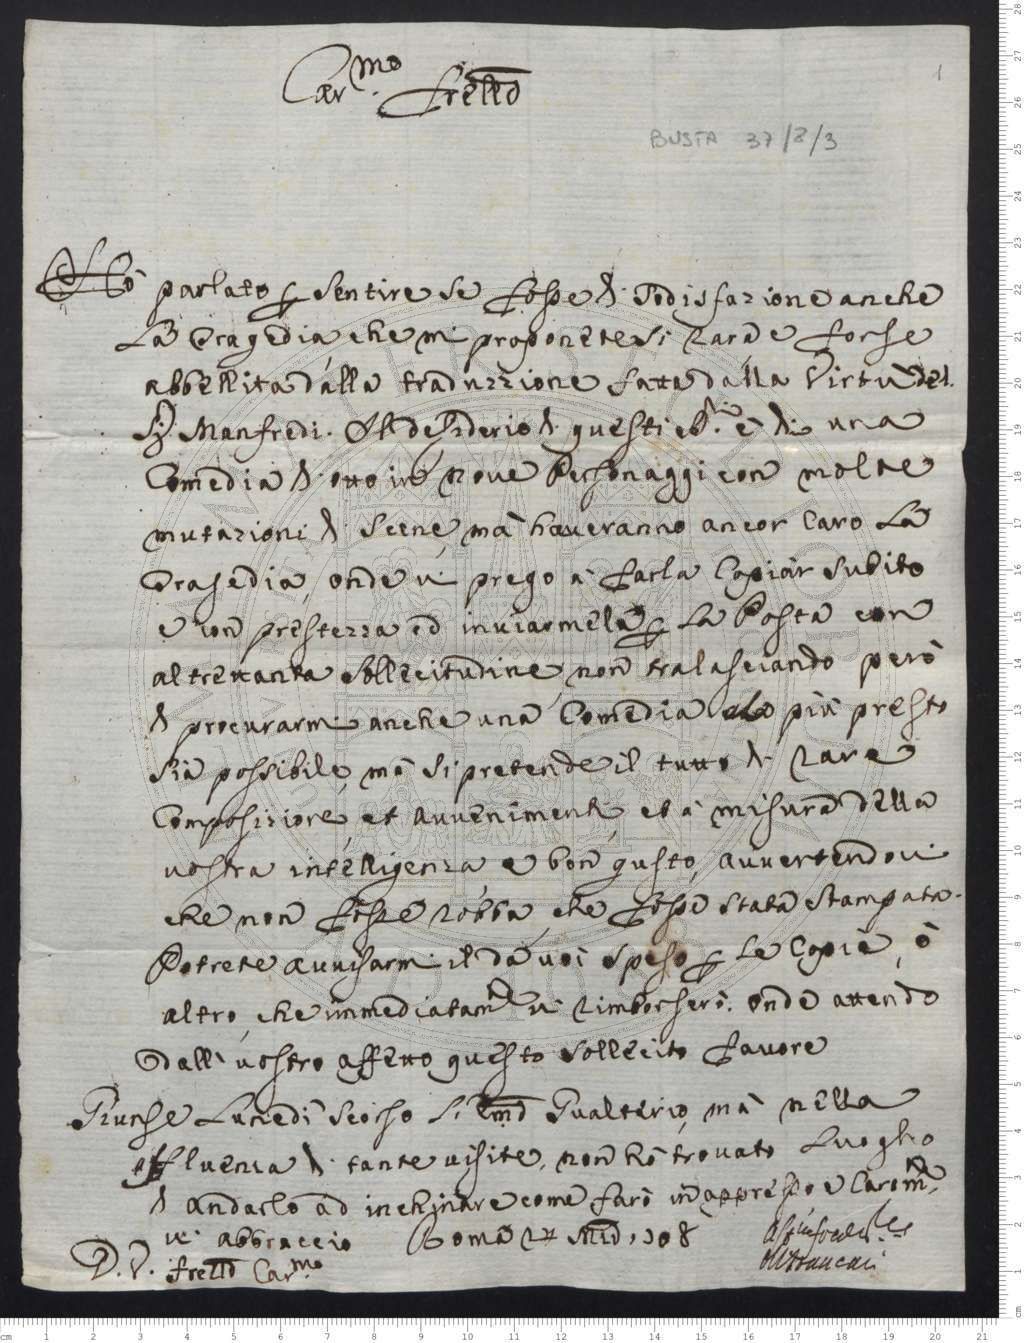 Car.mo frello
1
BUSTA 37/8/3
Hò parlato per sentire se fosse di sodisfazione anche
La Tragedia che mi proponete si rara e forse
abbellita dalla traduzzione fatta dalla Virtù del
Sig. Manfredi. Il desiderio di questi è di una
Comedia di otto in nove Personaggi con molte
mutazioni di Scene, mà haveranno ancor Caro La
Tragedia, onde vi prego à farla Copiàr subito
e con prestezza ed inviarmela per La Posta con
altrettanta sollecitudine, non tralasciando però
di procurarmi anche una Comedia più presto
sia possibile, mà si pretende il tutto di rare
Composizione, et avvenimenti, et à misura della
vostra intelligenza e bon gusto, avvertendovi
che non fosse robba, che fosse stata stampata.
Potrete avvisarmi il da voi speso per Le Copie, ò
altro, che immediatam.te vi rimborserò. Onde attendo
dall' vostro affetto questo sollecito favore
Giunse Lunedi scorso Gualterio, mà nella
affluenza di tante visite, non hò trovato Luogho
di andarlo ad inchinare come farò in appresso e Carom.te
vi abbraccio Roma
D. V. frello Car.mo